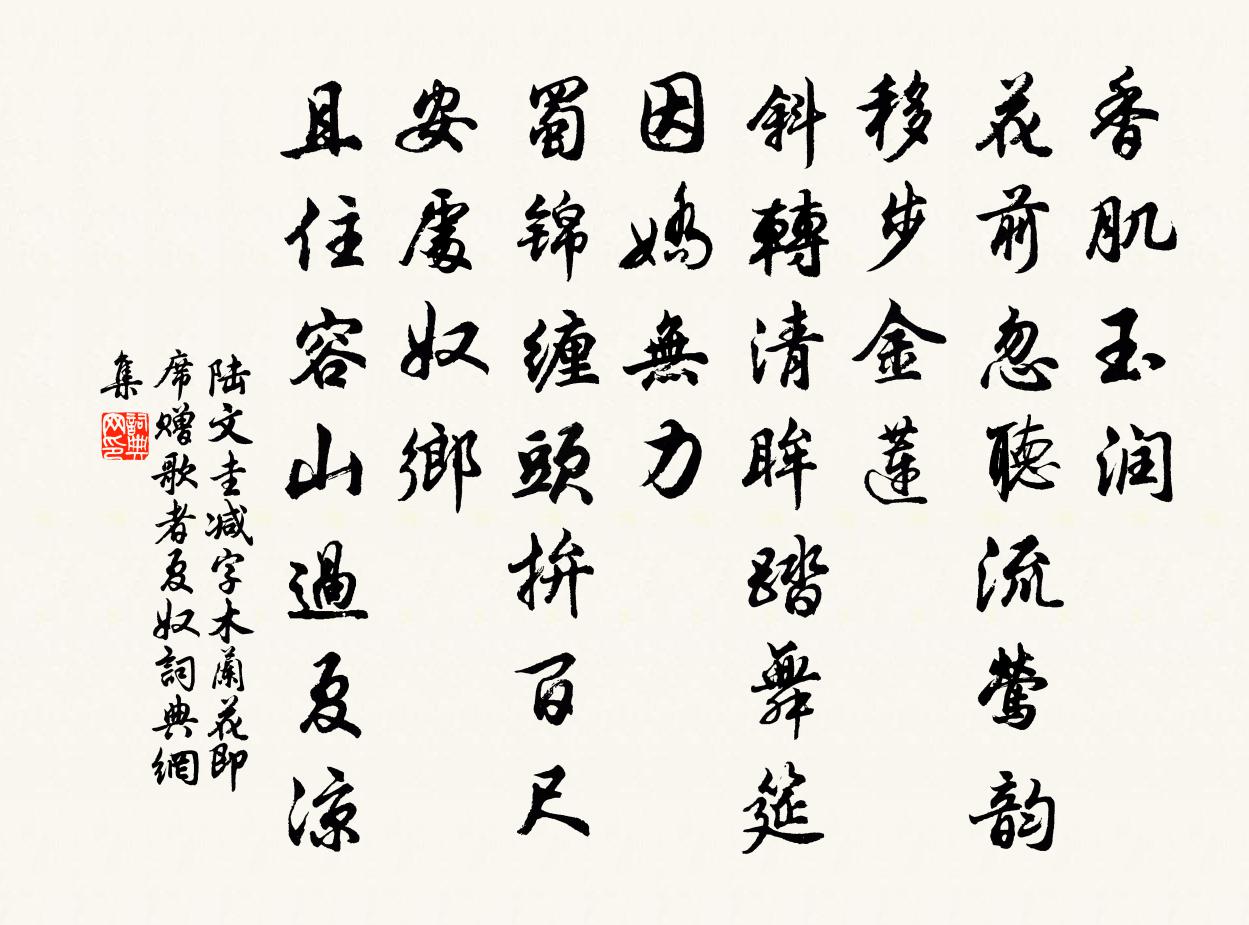 香肌玉润
花前忽聽流鶯韵
移步金蓮
斜轉清眸踏舞筵
因嬌無力
蜀锦缠頭拚百尺
安處奴鄉
且住容山過夏凉
陆文圭减字木蘭花即
席赠歌者夏奴詞典網
集
詞典
网印